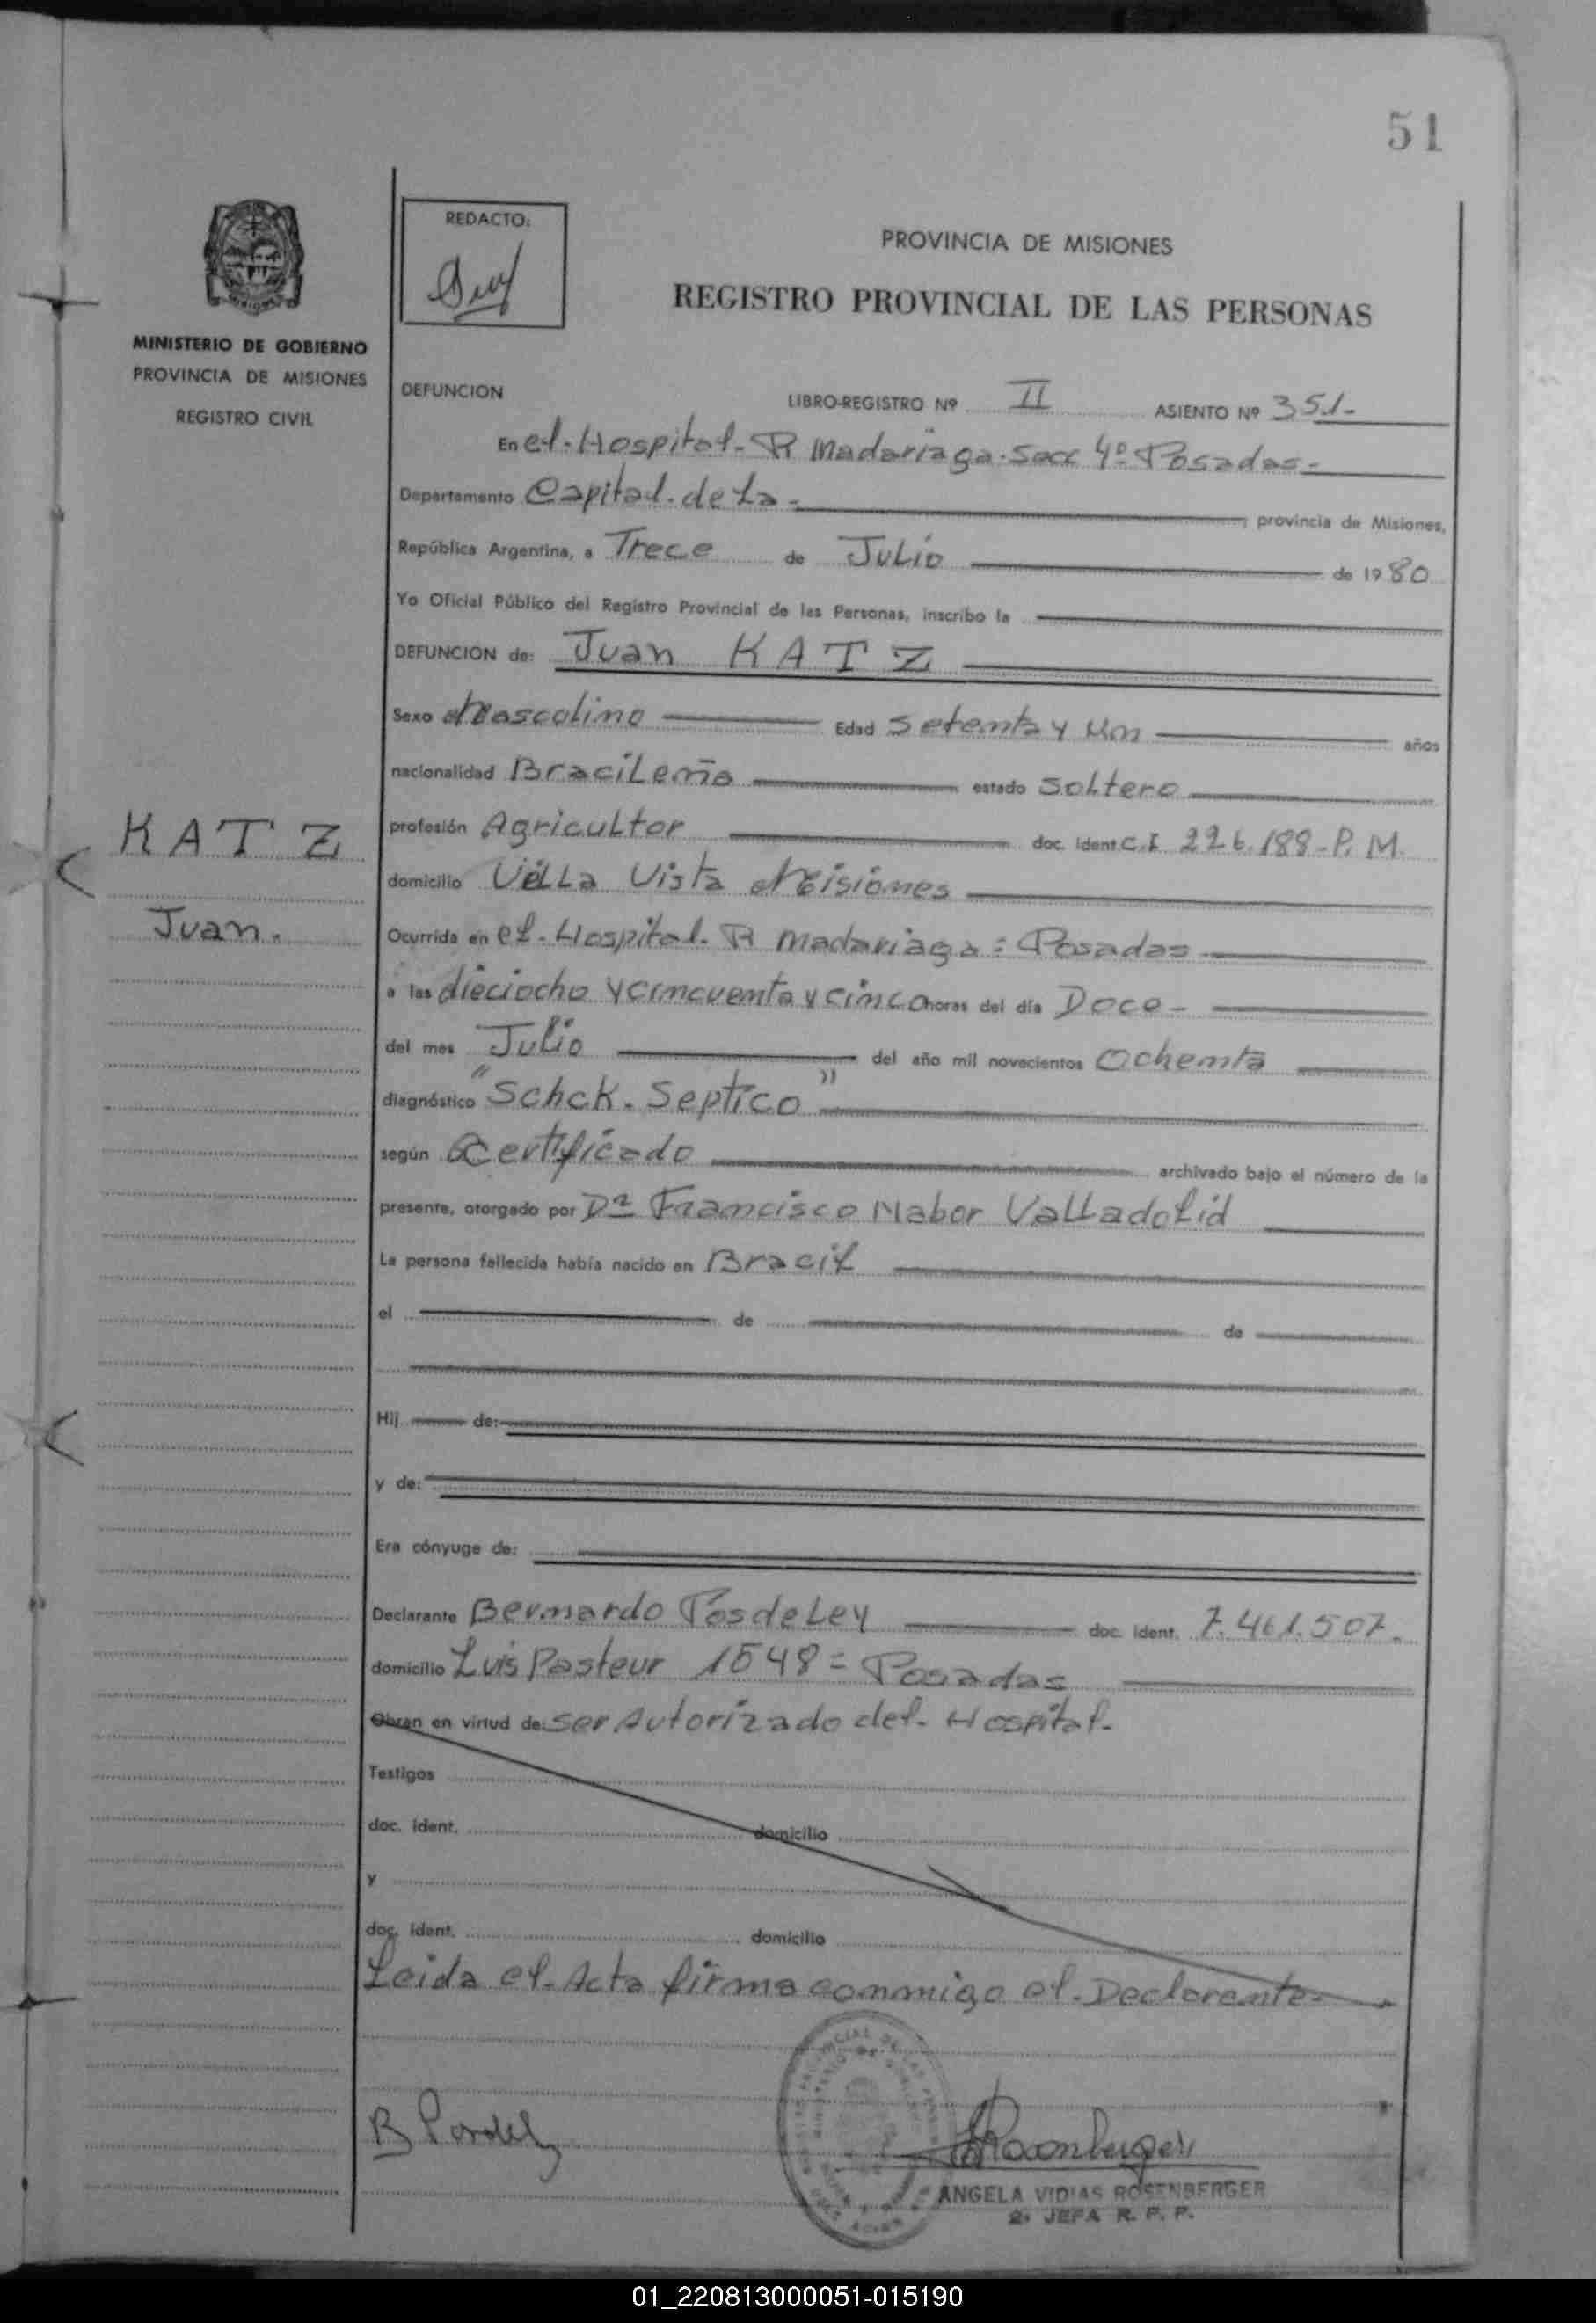 51
REDACTO:
PROVINCIA DE MISIONES
REGISTRO PROVINCIAL DE LAS PERSONAS
MINISTERIO DE GOBIERNO
PROVINCIA DE MISIONES
REGISTRO CIVIL
DEFUNCION LIBRO-REGISTRO Nº II ASIENTO Nº 351-
En el-Hospital-R Madariaga-Secc 4º Posadas-
Departamento Capital-de La- provincia de Misiones,
República Argentina, a Trece de Julio de 1980
Yo Oficial Público del Registro Provincial de las Personas, inscribo la
DEFUNCION de: Juan KATZ
Sexo Mascolino Edad Setenta y Un años
nacionalidad Bracileño estado Soltero
KATZ
Juan.
profesión Agricultor doc. ident C.I 226.188-P.M.
domicilio Vella Vista Misiones
Ocurrida en el-Hospital-R Madariaga=Posadas
a las dieciocho y cincuenta y cinco horas del día Doce-
del mes Julio del año mil novecientos Ochenta
diagnóstico "Schck. Septico"
según Certificado archivado bajo el número de la
presente, otorgado por Francisco Nabor Valladolid
La persona fallecida había nacido en Bracil
el de de
Hij de:
y de:
Era cónyuge de:
Declarante Bernardo PosdeLey doc. ident. 7.461.507.
domicilio Luis Pasteur 1548=Posadas
Obran en virtud de: ser Autorizado del-Hospital-
Testigos
doc. ident. domicilio
y
doc. ident. domicilio
Leida el-Acta firma conmigo el-Declarente-
ANGELA VIDIAS ROSENBERGER
2. JEFA R. P. P.
01_220813000051-015190